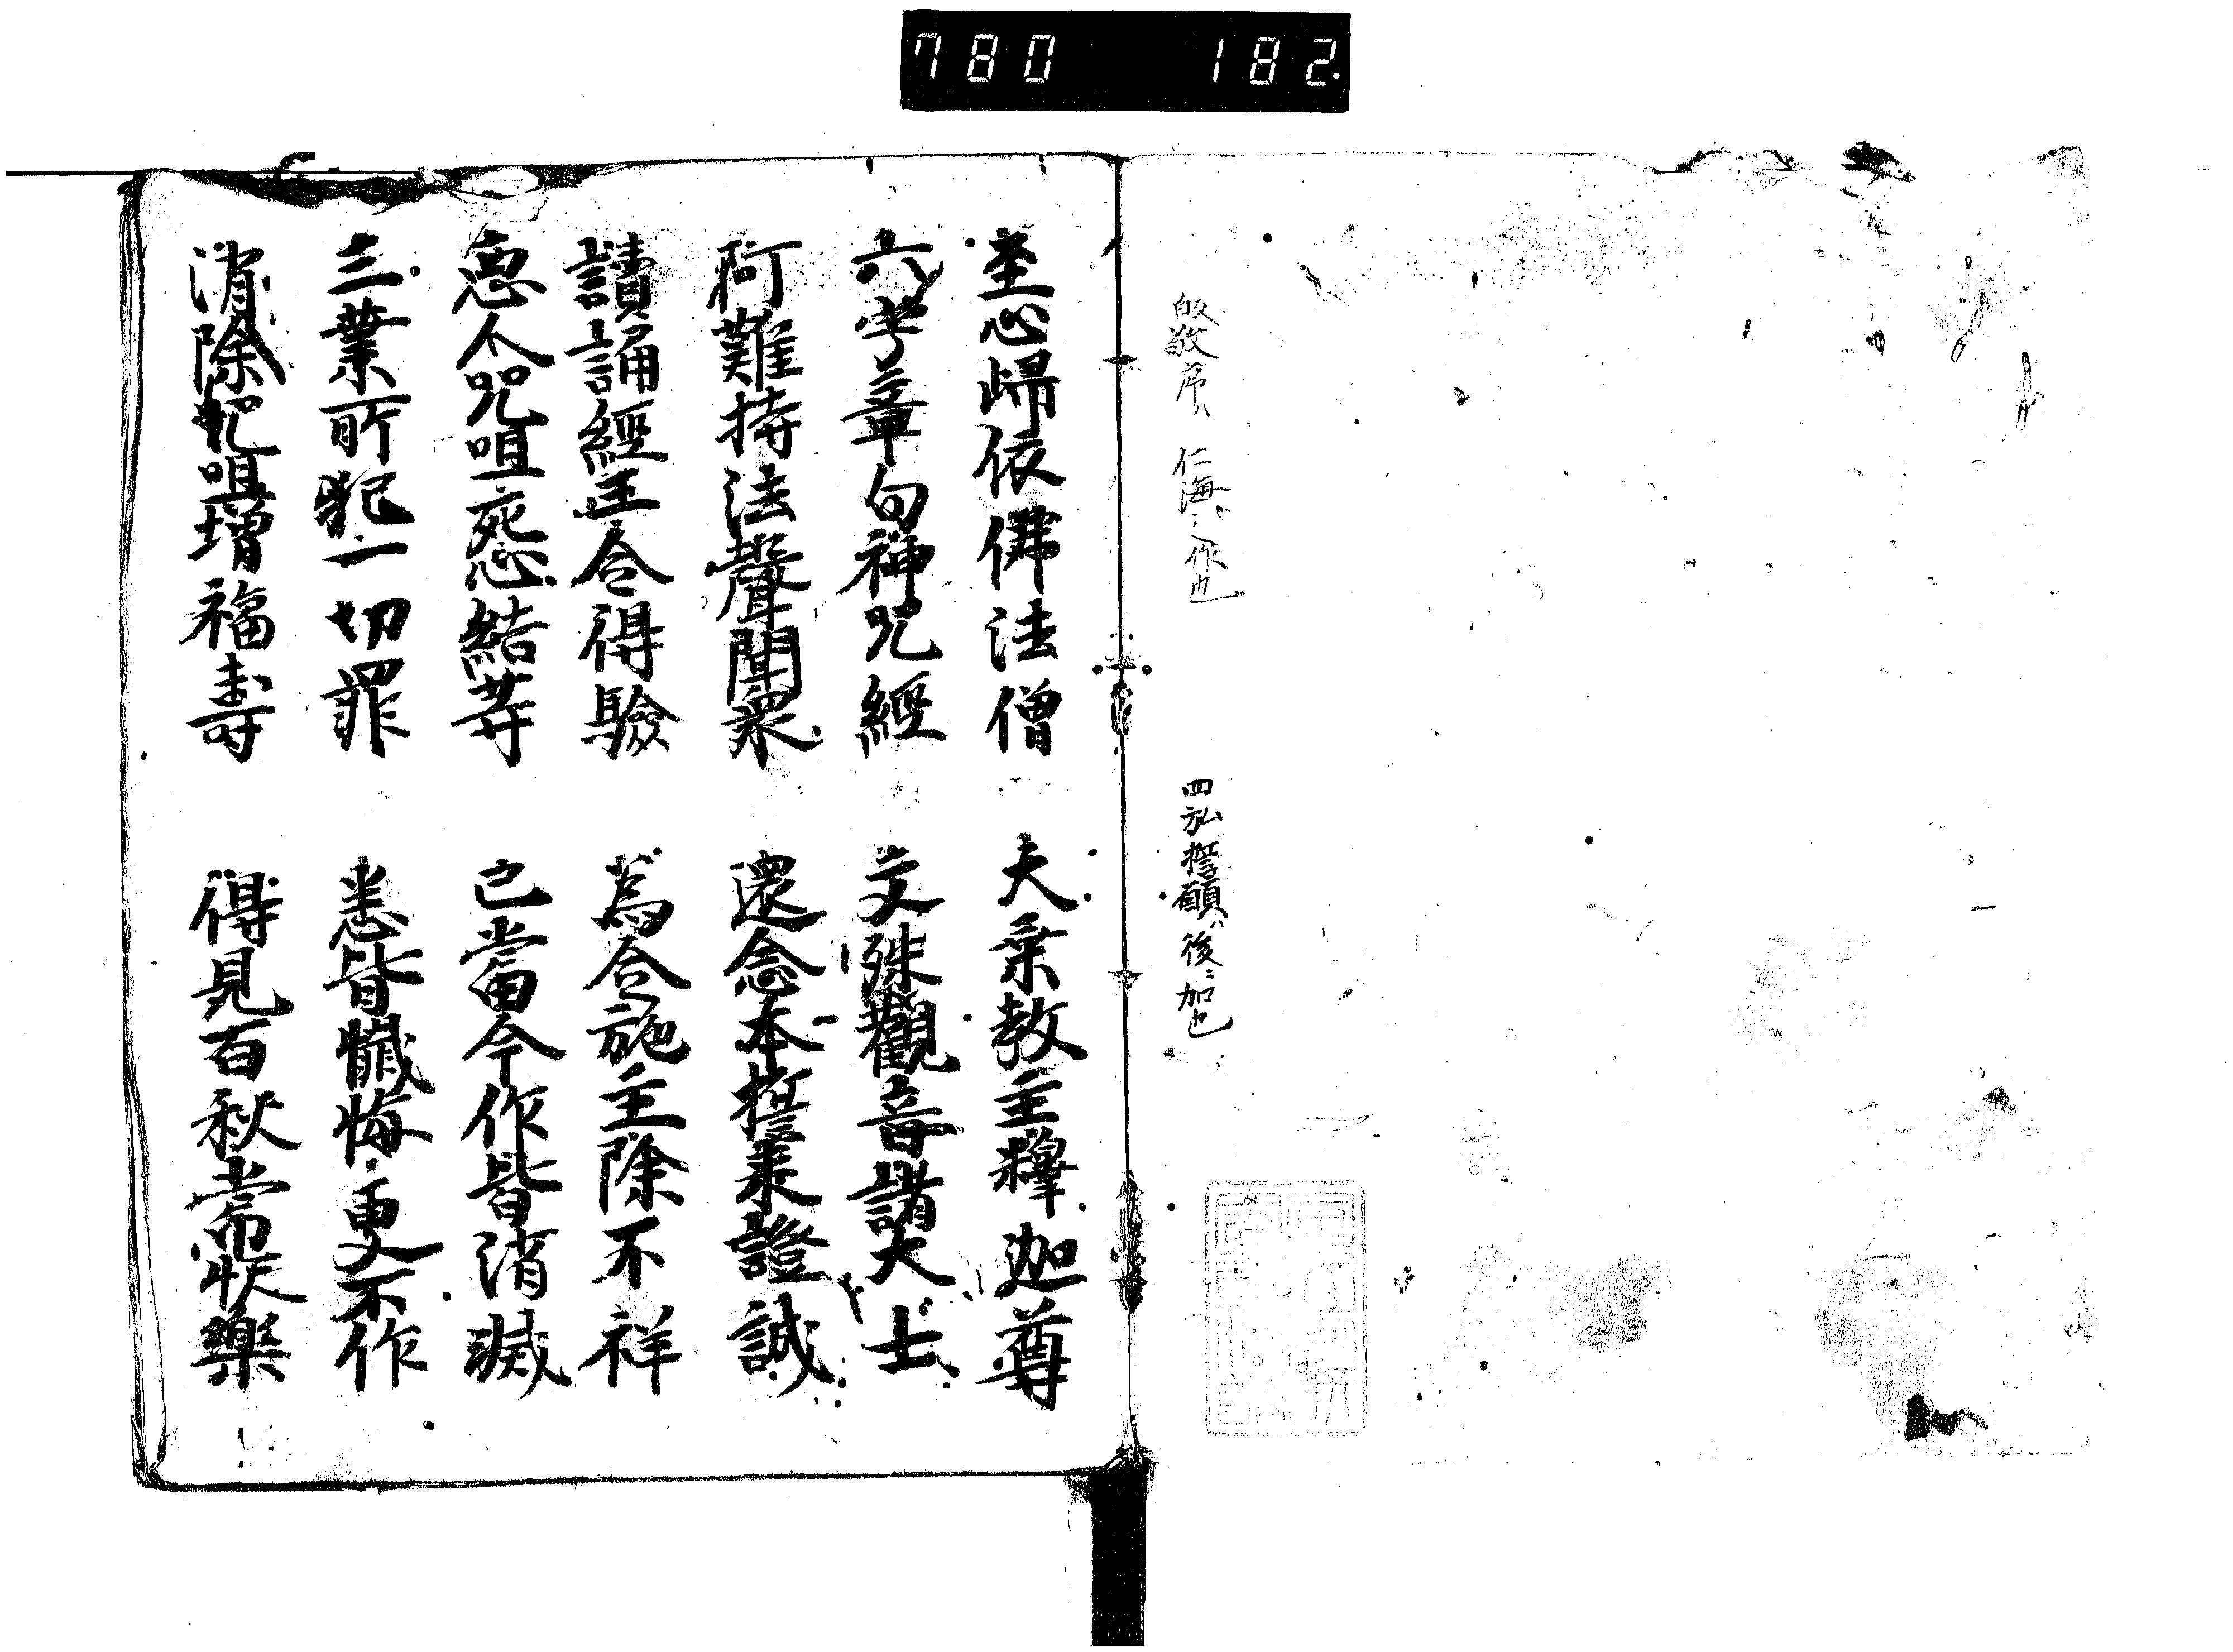 780 182
啟敬序、仁海之作也
四弘誓願、後ニ加也
至心歸依佛法僧 大乗教主釋迦尊
六字章句神咒經 文殊觀音諸大士
阿難持法聲聞衆 還念本誓来證誠
讀誦經王令得驗 為令施主除不祥
惡人咒咀死怨結等 已當今作皆消滅
三業所犯一切罪 悉皆懺悔更不作
消除咒咀增福壽 得見百秋常快樂